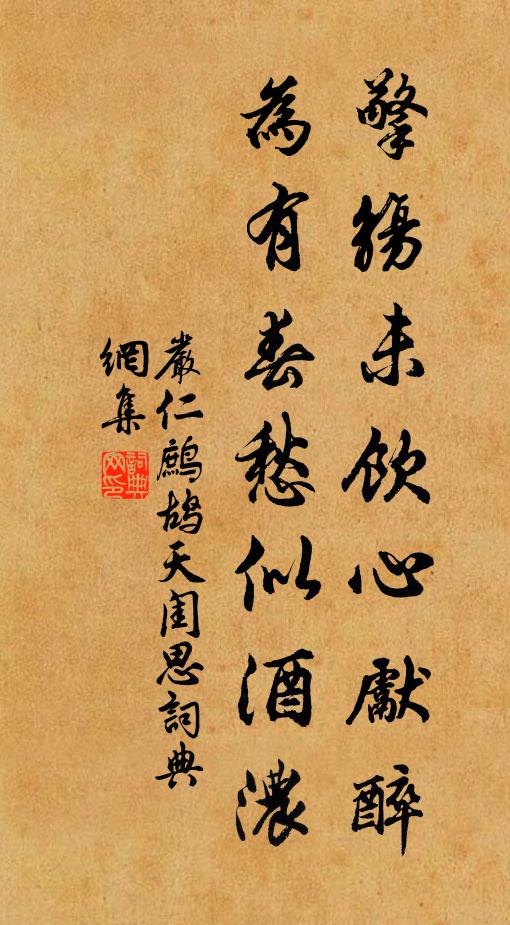 擎觴未飲心獻醉
為有春愁似酒濃
嚴仁鷓鴣天閨思詞典
網集
詞典
网印